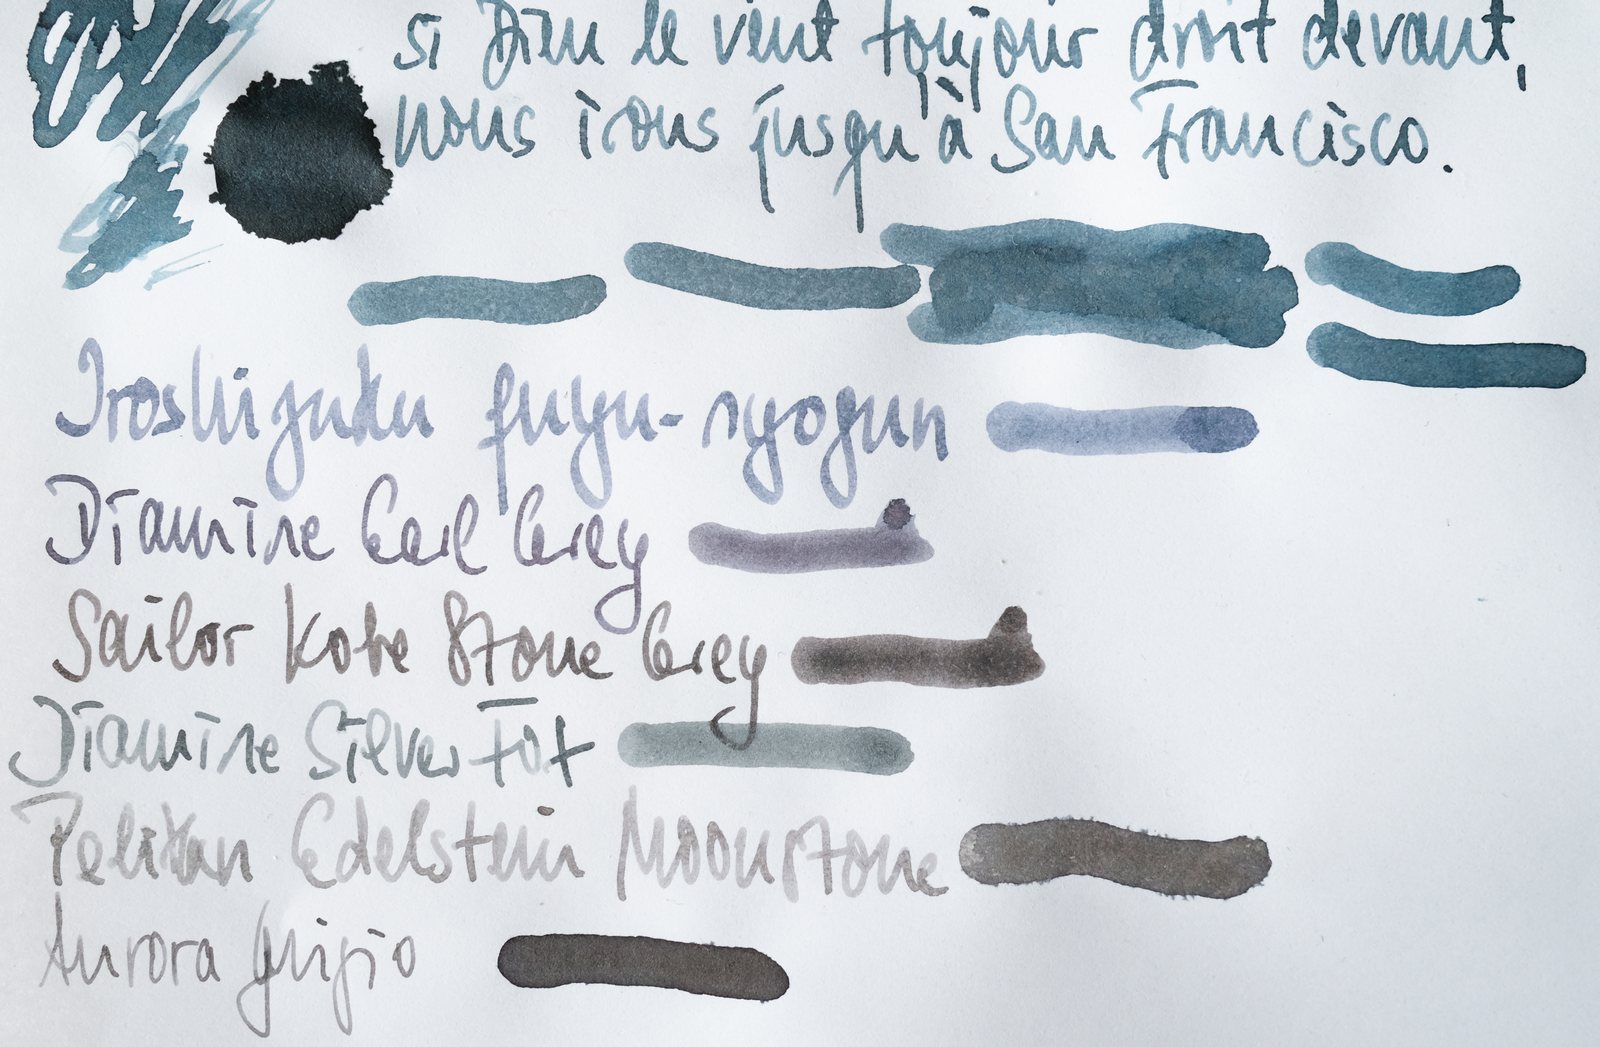 si Dieu le veut toujour droit devant,
nous irons jusqu'à San Francisco.
Iroshizuku fuyu-syogun
Diamine Earl Grey
Sailor Kobe Stone Grey
Diamine Silver Fox
Pelikan Edelstein Moonstone
Aurora Grigio